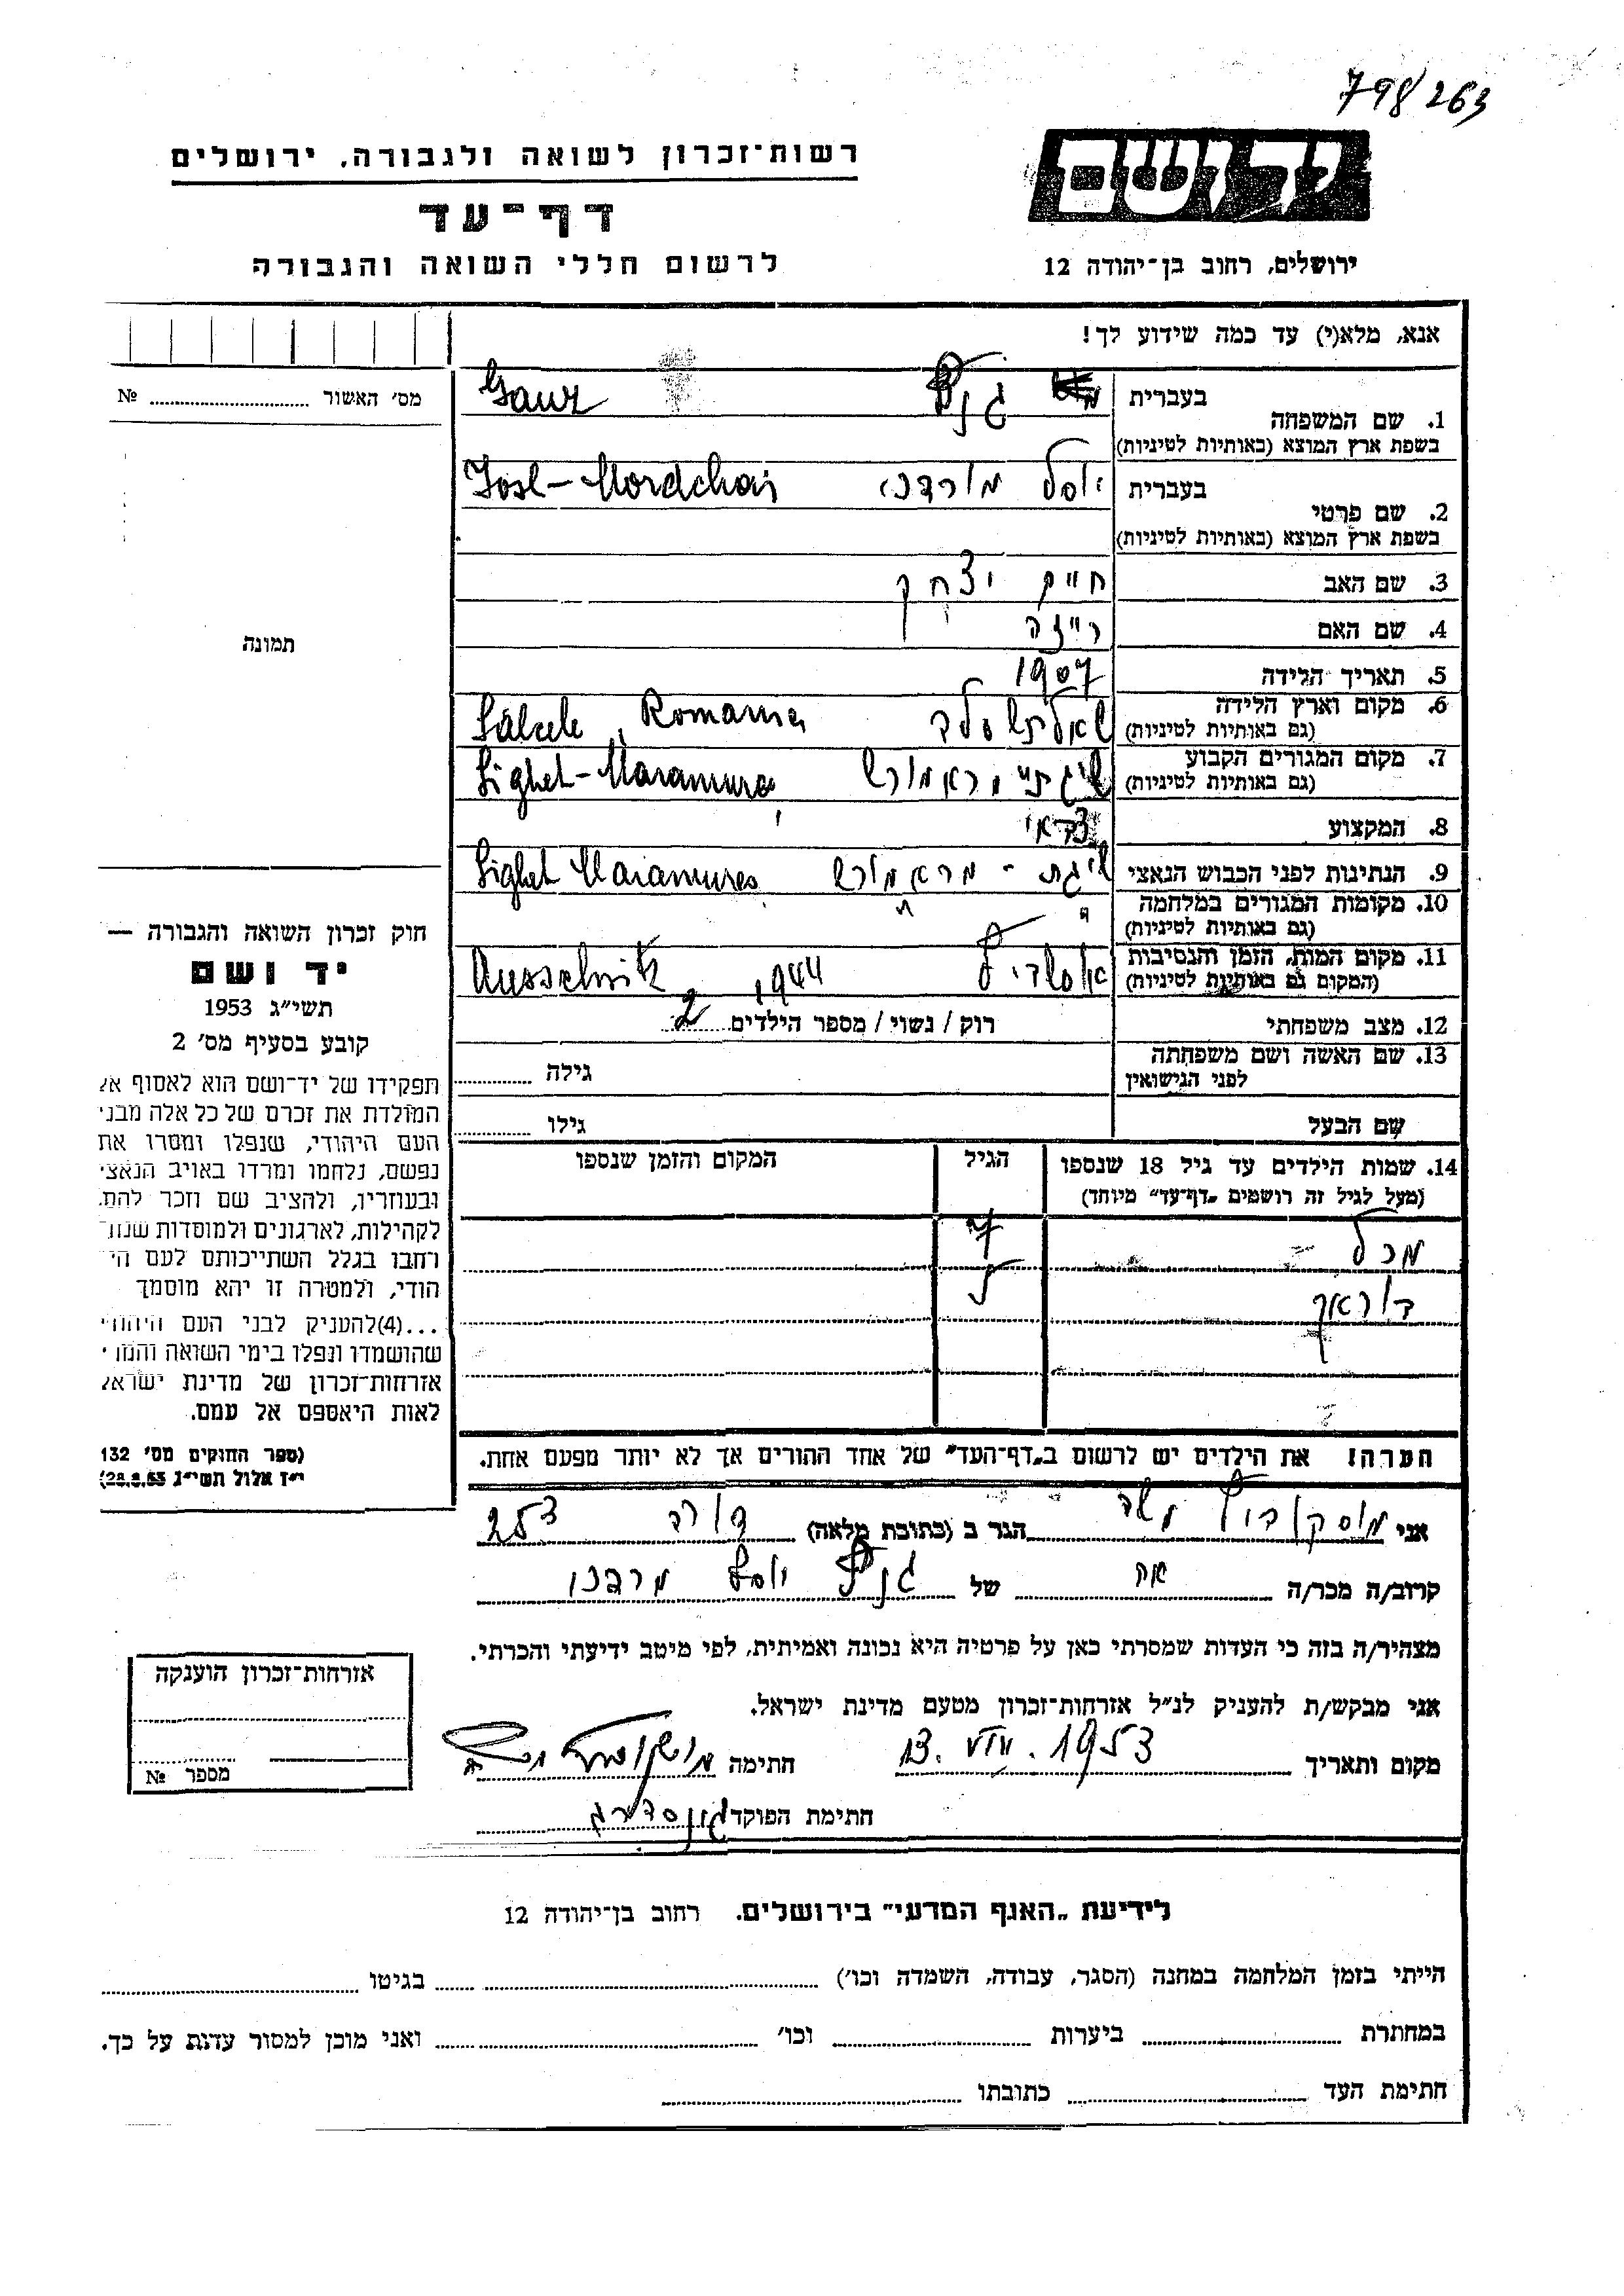 798/263
ידושם
רשות־זכרון לשואה ולגבורה, ירושלים
דף־עד
לרשום חללי השואה והגבורה
ירושלים, רחוב בן־יהודה 12
אנא, מלא(י) עד כמה שידוע לך!
מס׳ האשור № 
תמונה
1. שם המשפחה
בעברית גנץ Ganz
בשפת ארץ המוצא (באותיות לטיניות)
2. שם פרטי
בעברית יוסל מורדכי Josl-Mordchai
בשפת ארץ המוצא (באותיות לטיניות)
3. שם האב חיים יצחק
4. שם האם רייזה
5. תאריך הלידה 1907
6. מקום וארץ הלידה Romania
(גם באותיות לטיניות)
7. מקום המגורים הקבוע Sighet-Maramures
(גם באותיות לטיניות)
8. המקצוע
9. הנתינות לפני הכבוש הנאצי סיגת - מראמורש Sighet Maramures
10. מקומות המגורים במלחמה
(גם באותיות לטיניות)
11. מקום המות, הזמן והנסיבות 1944 Ausschwitz
(המקום גם באותיות לטיניות)
12. מצב משפחתי רוק / נשוי / מספר הילדים 2
13. שם האשה ושם משפחתה
לפני הנישואין גילה
שם הבעל גילו
14. שמות הילדים עד גיל 18 שנספו הגיל המקום והזמן שנספו
(מעל לגיל זה רושמים „דף־עד״ מיוחד)
7
5
הערה! את הילדים יש לרשום ב„דף־העד״ של אחד ההורים אך לא יותר מפעם אחת.
חוק זכרון השואה והגבורה —
יד ושם
תשי״ג 1953
קובע בסעיף מס׳ 2
תפקידו של יד־ושם הוא לאסוף אל
המולדת את זכרם של כל אלה מבני
העם היהודי, שנפלו ומסרו את
נפשם, נלחמו ומרדו באויב הנאצי
ובעוזריו, ולהציב שם וזכר להם,
לקהילות, לארגונים ולמוסדות שנח־
רחבו בגלל השתייכותם לעם הי
הודי, ולמטרה זו יהא מוסמך
...(4)להעניק לבני העם היהודי
שהושמדו ונפלו בימי השואה והמרי
אזרחות־זכרון של מדינת ישראל
לאות היאספם אל עמם.
(ספר החוקים מס׳ 132
י״ז אלול תשי״ג 28.8.53)
אני מוסקוביץ משה הגר ב (כתובת מלאה) דורה 253
קרוב/ה מכר/ה אח של גנץ יוסל מרדכי
מצהיר/ה בזה כי העדות שמסרתי כאן על פרטיה היא נכונה ואמיתית, לפי מיטב ידיעתי והכרתי.
אני מבקש/ת להעניק לנ״ל אזרחות־זכרון מטעם מדינת ישראל.
מקום ותאריך 13. VIII. 1953 חתימה
חתימת הפוקד
אזרחות־זכרון הוענקה
מספר №
לידיעת „האגף המדעי״ בירושלים. רחוב בן־יהודה 12
הייתי בזמן המלחמה במחנה (הסגר, עבודה, השמדה וכו׳) בגיטו
במחתרת ביערות וכו׳ ואני מוכן למסור עדות על כך.
חתימת העד כתובתו